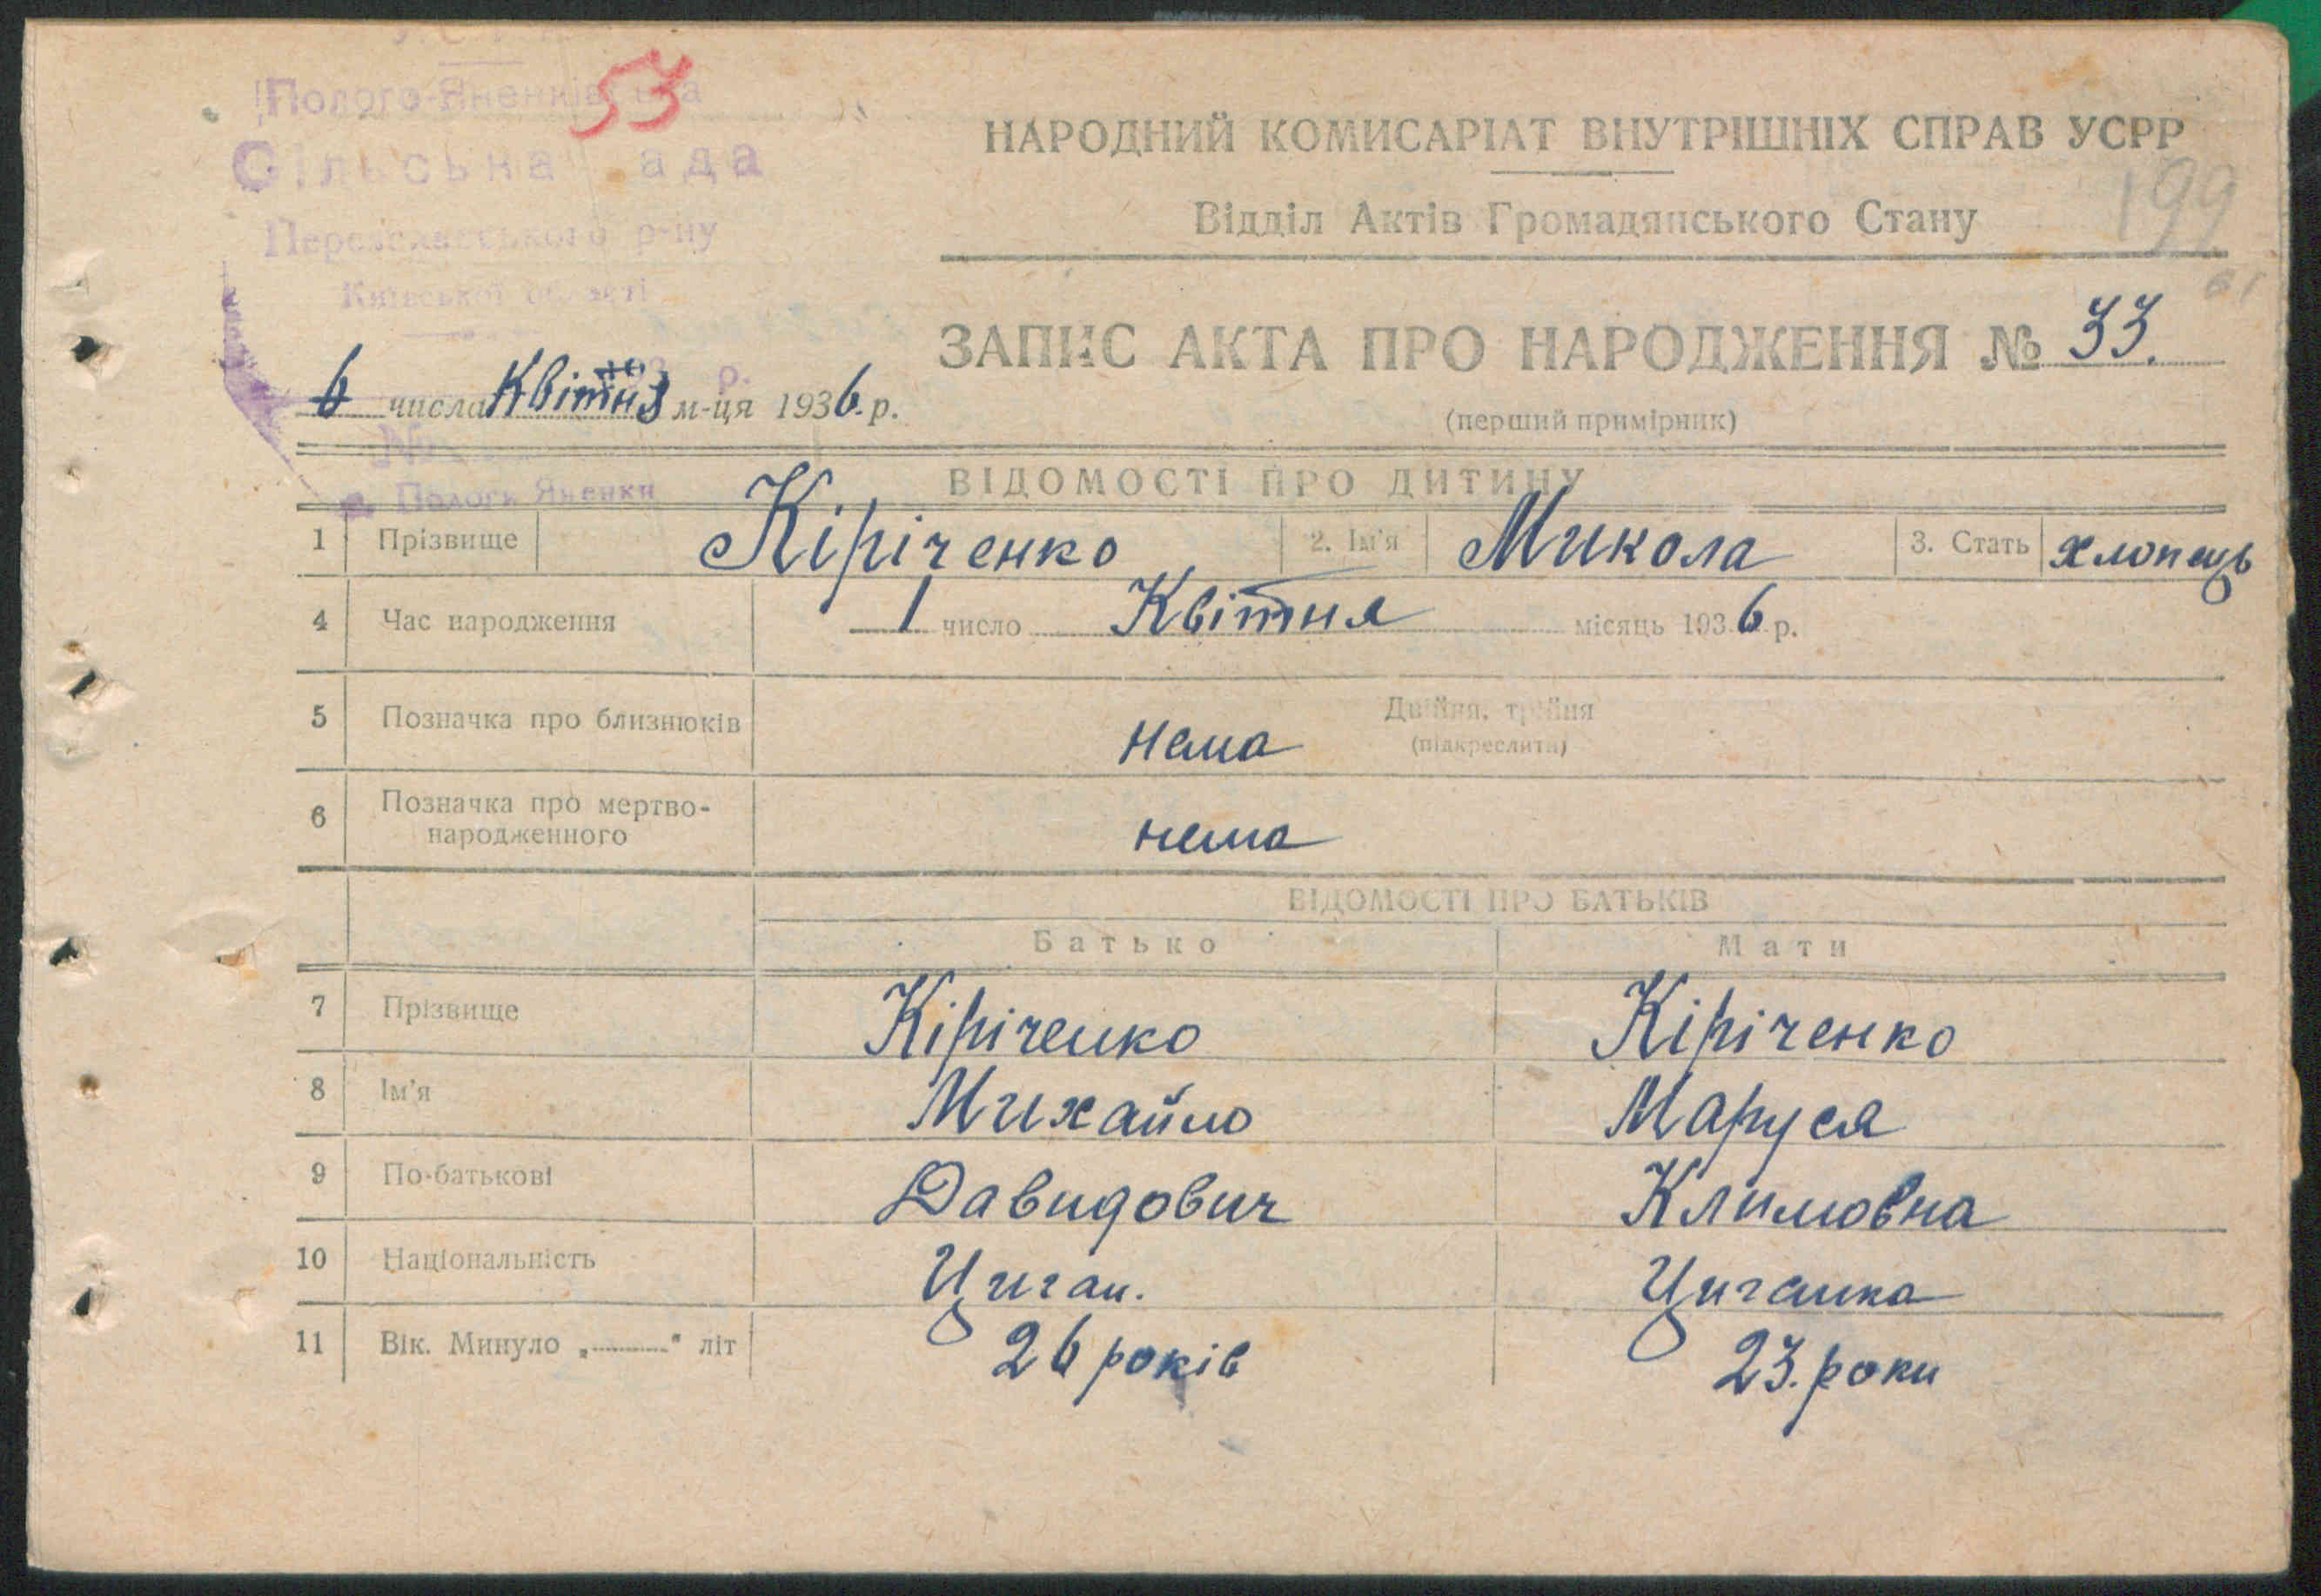 53
Полого-Яненківська
Сільська Рада
Переяславського р-ну
Київської області
НАРОДНИЙ КОМИСАРІАТ ВНУТРІШНІХ СПРАВ УСРР
Відділ Актів Громадянського Стану
199
61
ЗАПИС АКТА ПРО НАРОДЖЕННЯ № 33.
(перший примірник)
6 числа Квітня м-ця 1936 р.
№
с. Пологи Яненки
ВІДОМОСТІ ПРО ДИТИНУ
1 Прізвище Кіріченко 2. Ім'я Микола 3. Стать хлопець
4 Час народження 1 число Квітня місяць 1936 р.
5 Позначка про близнюків нема Двійня, трійня
(підкреслити)
6 Позначка про мертво-
народженного нема
ВІДОМОСТІ ПРО БАТЬКІВ
Батько Мати
7 Прізвище Кіріченко Кіріченко
8 Ім'я Михайло Маруся
9 По-батькові Давидович Климовна
10 Національність Циган. Циганка
11 Вік. Минуло „ " літ 26 років 23. роки